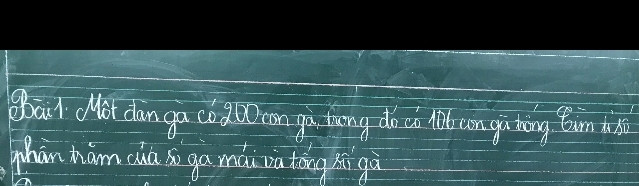 Bài 1. Một đàn gà có 200 con gà, trong đó có 106 con gà trống. Tìm tỉ số
phần trăm của số gà mái và tổng số gà